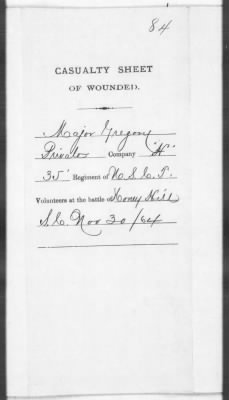 84
CASUALTY SHEET
OF WOUNDED.
Major Gregory
Private Company "H"
35' Regiment of U.S.C.T.
Volunteers at the battle of Honey Hill
S.C. Nov 30/64